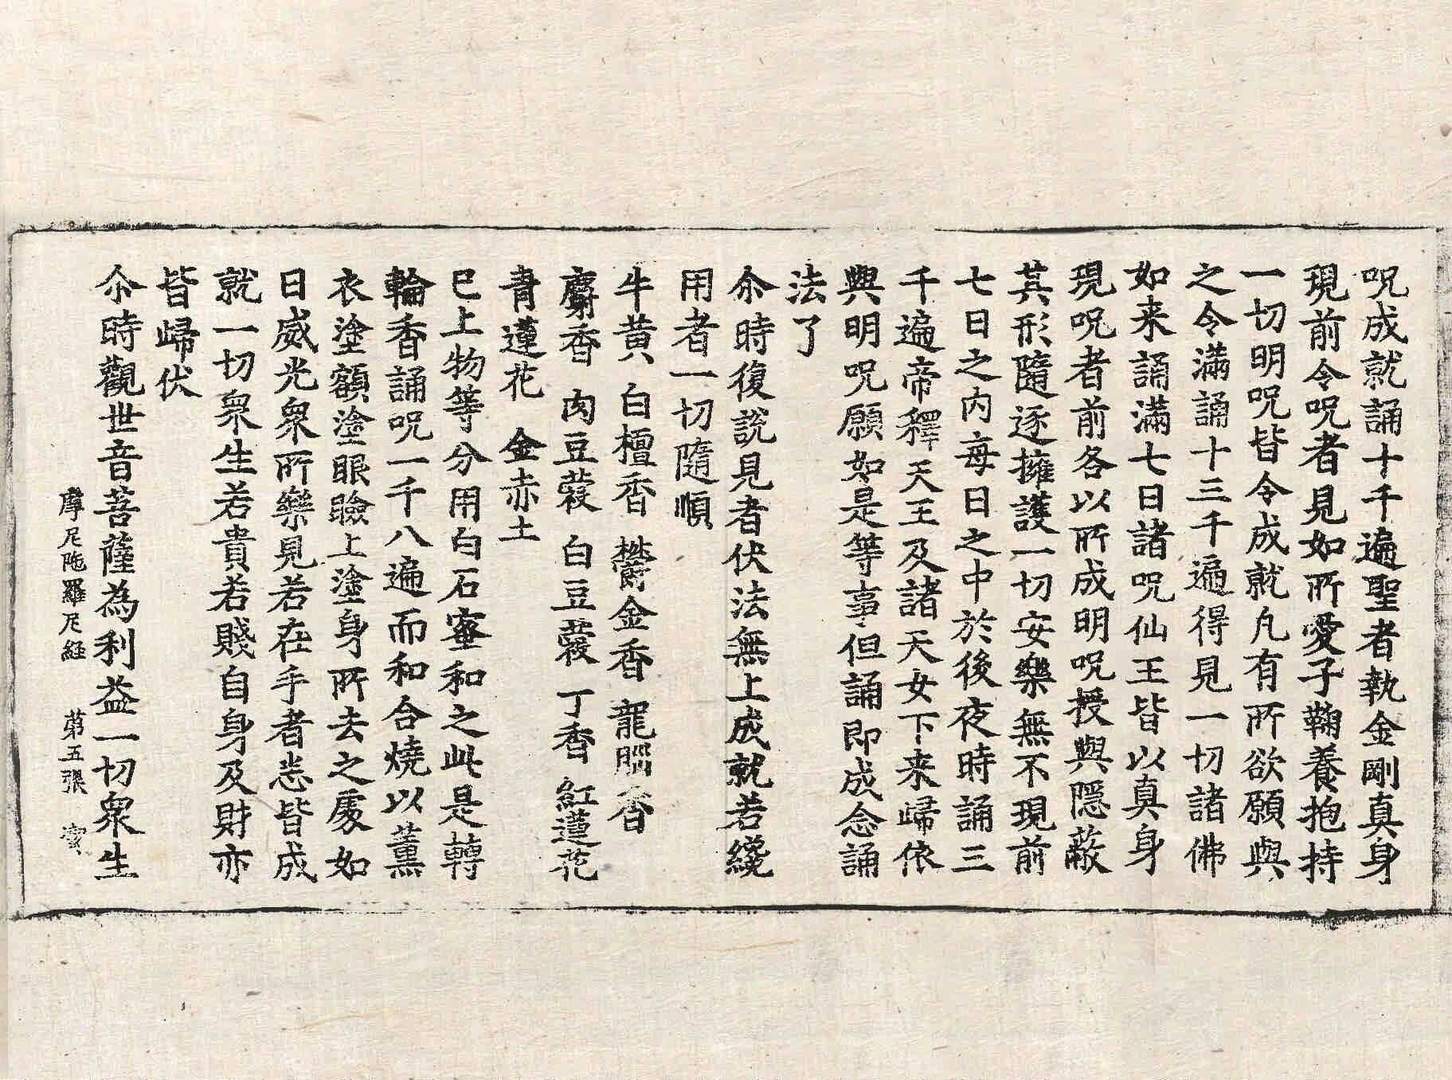 呪成就誦十千遍聖者執金剛真身
現前令呪者見如所愛子鞠養抱持
一切明呪皆令成就凡有所欲願與
之令滿誦十三千遍得見一切諸佛
如来誦滿七日諸呪仙王皆以真身
現呪者前各以所成明呪授與隱蔽
其形隨逐擁護一切安樂無不現前
七日之內每日之中於後夜時誦三
千遍帝釋天王及諸天女下来歸依
與明呪願如是等事但誦即成念誦
法了
尒時復說見者伏法無上成就若纔
用者一切隨順
牛黄 白檀香 欝金香 龍腦香
麝香 肉豆蔲 白豆蔲 丁香 紅蓮花
青蓮花 金赤土
已上物等分用白石蜜和之此是轉
輪香誦呪一千八遍而和合燒以薰
衣塗額塗眼瞼上塗身所去之處如
日威光衆所樂見若在手者悉皆成
就一切衆生若貴若賤自身及財亦
皆歸伏
尒時觀世音菩薩為利益一切衆生
摩尼陁羅尼経 第五張